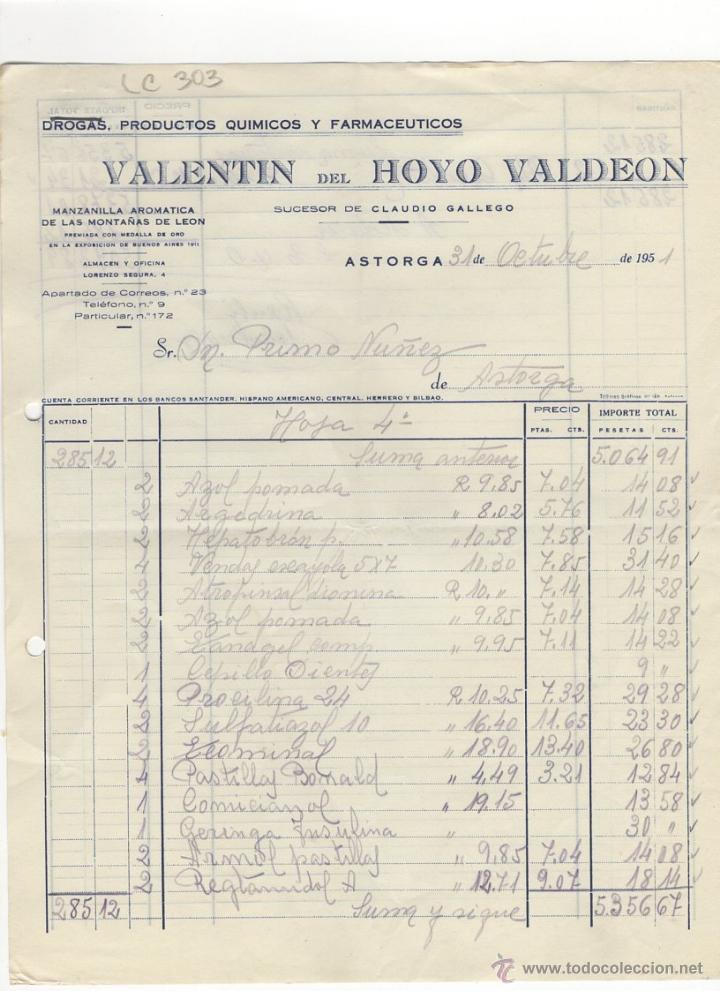 LC 303
DROGAS, PRODUCTOS QUIMICOS Y FARMACEUTICOS
VALENTIN DEL HOYO VALDEON
MANZANILLA AROMATICA
DE LAS MONTAÑAS DE LEON
PREMIADA CON MEDALLA DE ORO
EN LA EXPOSICION DE BUENOS AIRES 1911
ALMACEN Y OFICINA
LORENZO SEGURA, 4
Apartado de Correos, n.º 23
Teléfono, n.º 9
Particular, n.º 172
SUCESOR DE CLAUDIO GALLEGO
ASTORGA 31 de Octubre de 1951
Sr. Dn. Primo Nuñez
de Astorga
CUENTA CORRIENTE EN LOS BANCOS SANTANDER, HISPANO AMERICANO, CENTRAL, HERRERO Y BILBAO.
CANTIDAD PRECIO IMPORTE TOTAL
PTAS. CTS. PESETAS CTS.
Hoja 4ª
285 12 Suma anterior 5.064 91
2 Azol pomada R 9.85 7.04 14 08
2 Argedrina " 8.02 5.76 11 52
2 Hepatobrán p. " 10.58 7.58 15 16
4 Vendas escayola 5x7 10.30 7.85 31 40
2 Atropinsal dionina R 10 " 7.14 14 28
2 Azol pomada " 9.85 7.04 14 08
2 comp. " 9.95 7.11 14 22
1 Cepillo Dientes 9 "
4 Procilina 24 R 10.25 7.32 29 28
2 Sulfatiazol 10 " 16.40 11.65 23 30
2 " 18.90 13.40 26 80
4 Pastillas Bonald " 4.49 3.21 12 84
1 " 19.15 13 58
1 Geringa Insulina " 30 "
2 pastillas " 9.85 7.04 14 08
2 " 12.71 9.07 18 14
285 12 Suma y sigue 5.356 67
www.todocoleccion.net